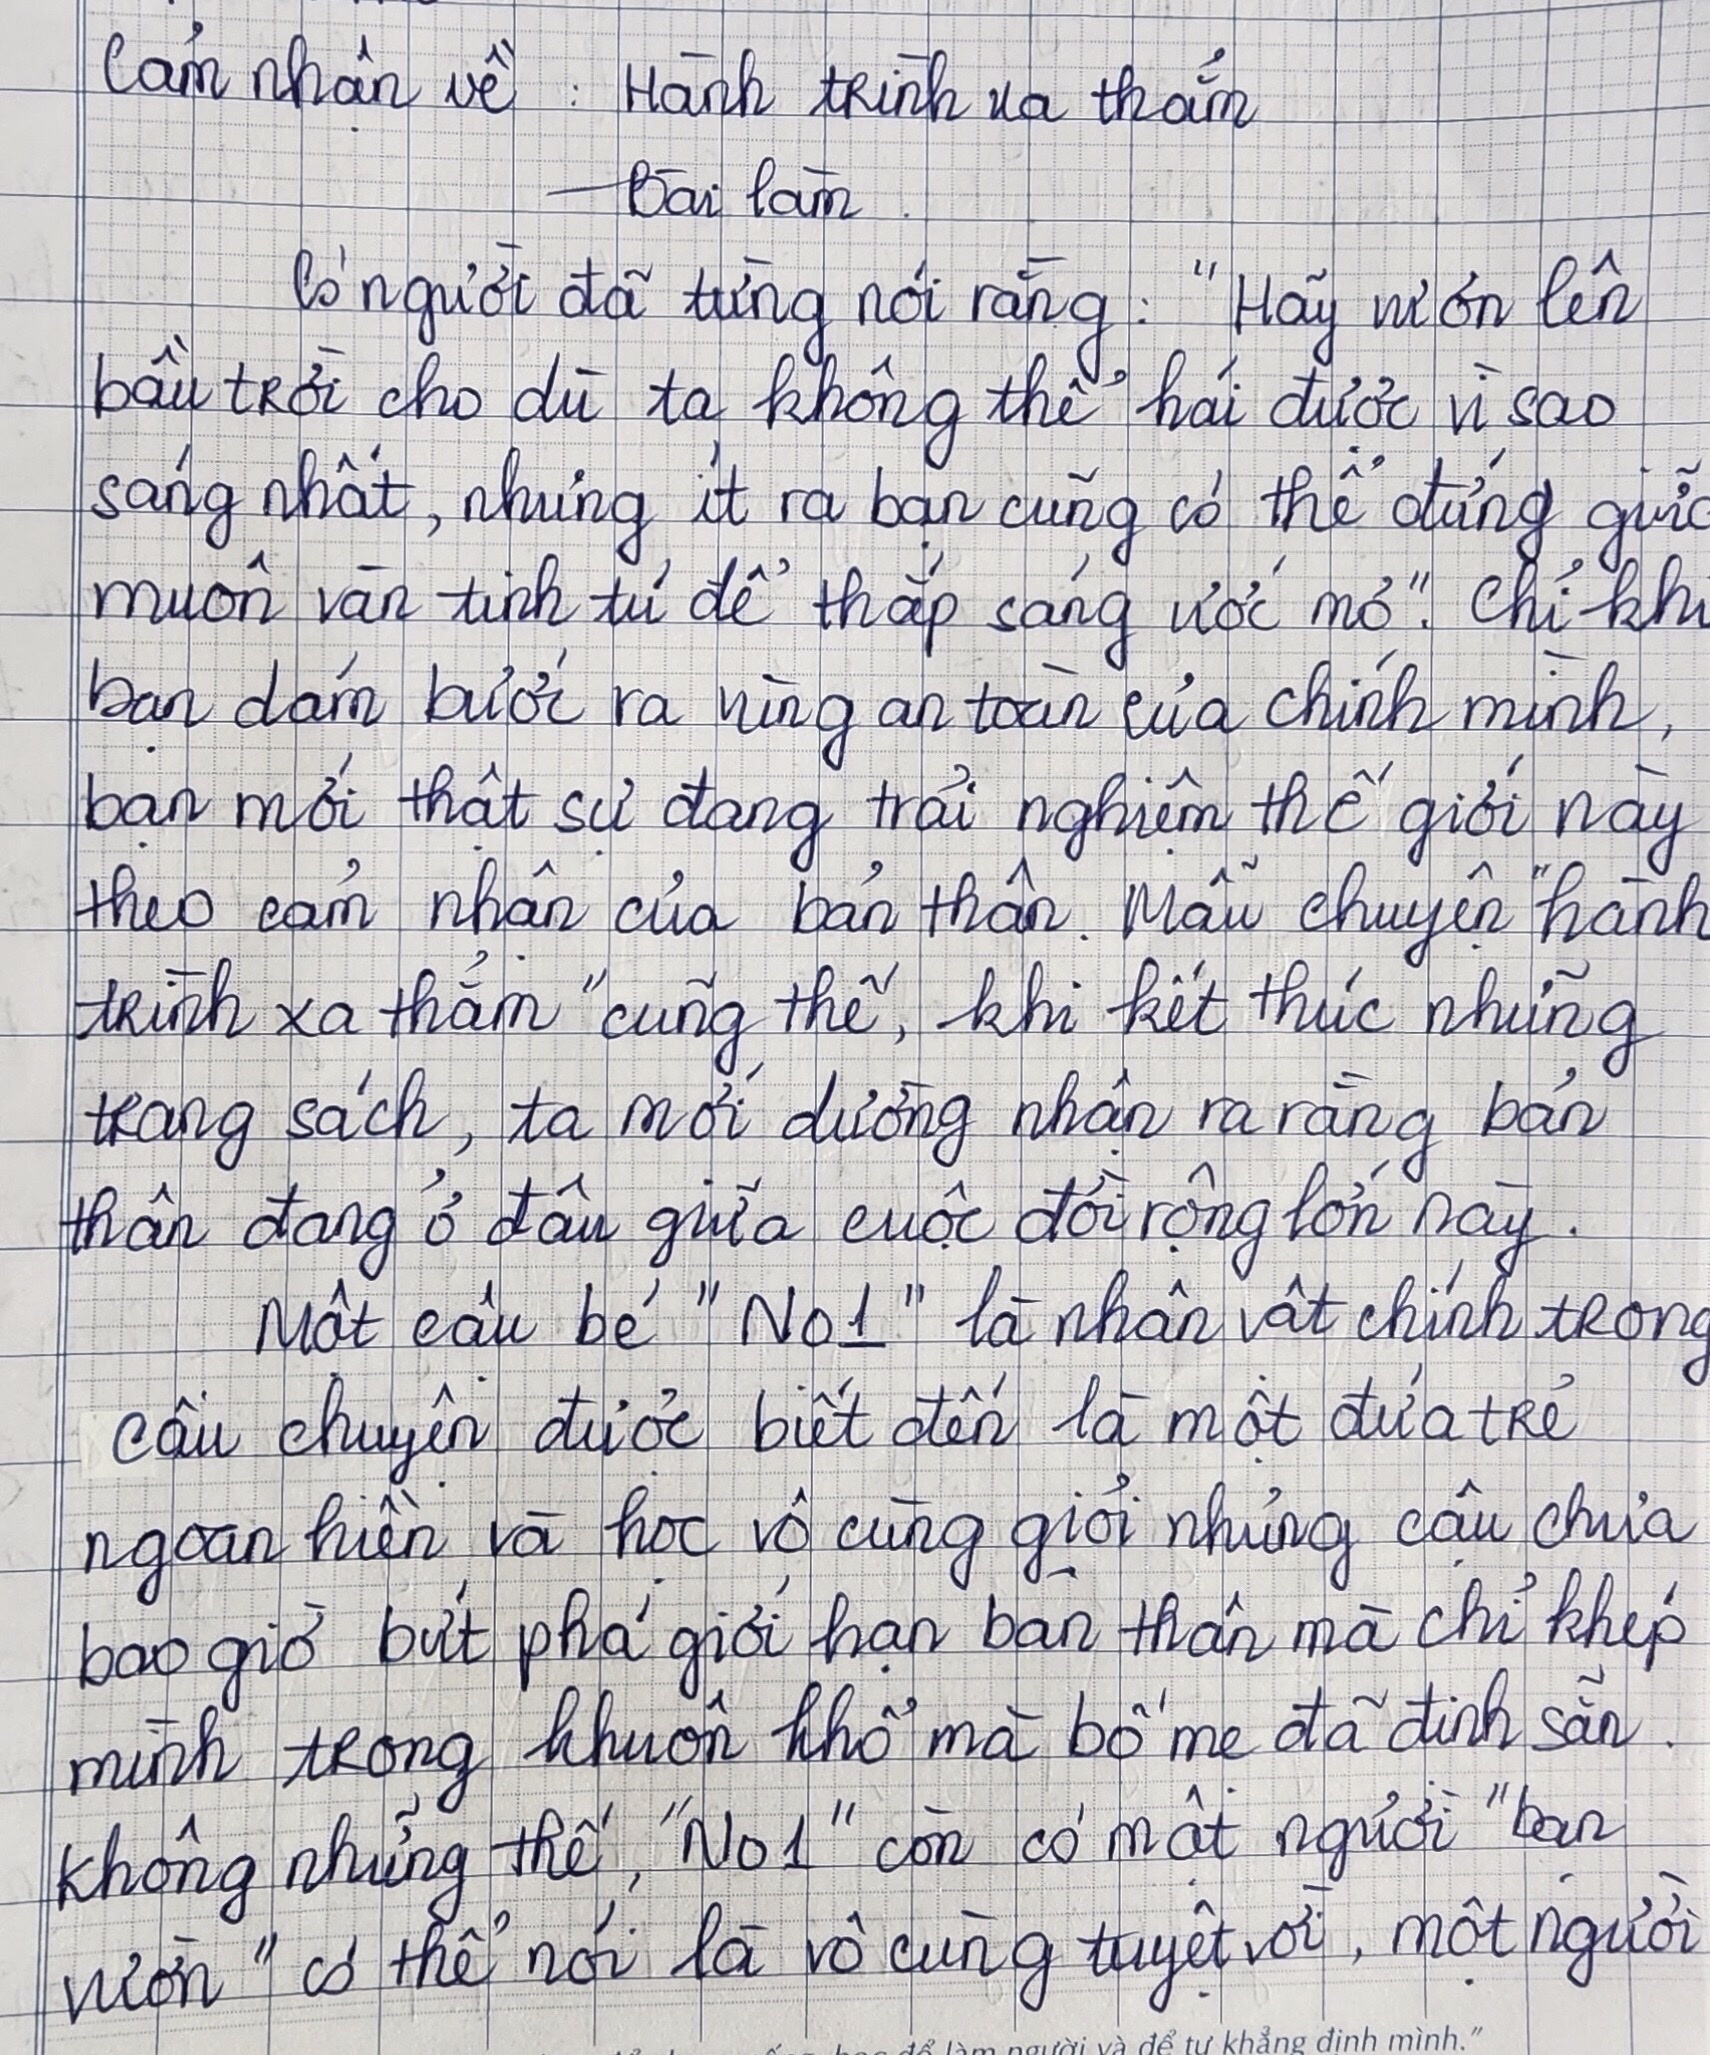 Cảm nhận về : Hành trình xa thẳm
Bài làm.
Có người đã từng nói rằng: "Hãy vươn lên
bầu trời cho dù ta không thể hái được vì sao
sáng nhất, nhưng ít ra bạn cũng có thể đứng giữa
muôn vàn tinh tú để thắp sáng ước mơ". Chỉ khi
bạn dám bước ra vùng an toàn của chính mình,
bạn mới thật sự đang trải nghiệm thế giới này
theo cảm nhận của bản thân. Mẫu chuyện "hành
trình xa thẳm" cũng thế, khi kết thúc những
trang sách, ta mới dường nhận ra rằng bản
thân đang ở đâu giữa cuộc đời rộng lớn này.
Một cậu bé "No1" là nhân vật chính trong
câu chuyện được biết đến là một đứa trẻ
ngoan hiền và học vô cùng giỏi nhưng cậu chưa
bao giờ bứt phá giới hạn bản thân mà chỉ khép
mình trong khuôn khổ mà bố mẹ đã định sẵn.
Không những thế, "No1" còn có một người "bạn
vườn" có thể nói là vô cùng tuyệt vời, một người
để làm người và để tự khẳng định mình."